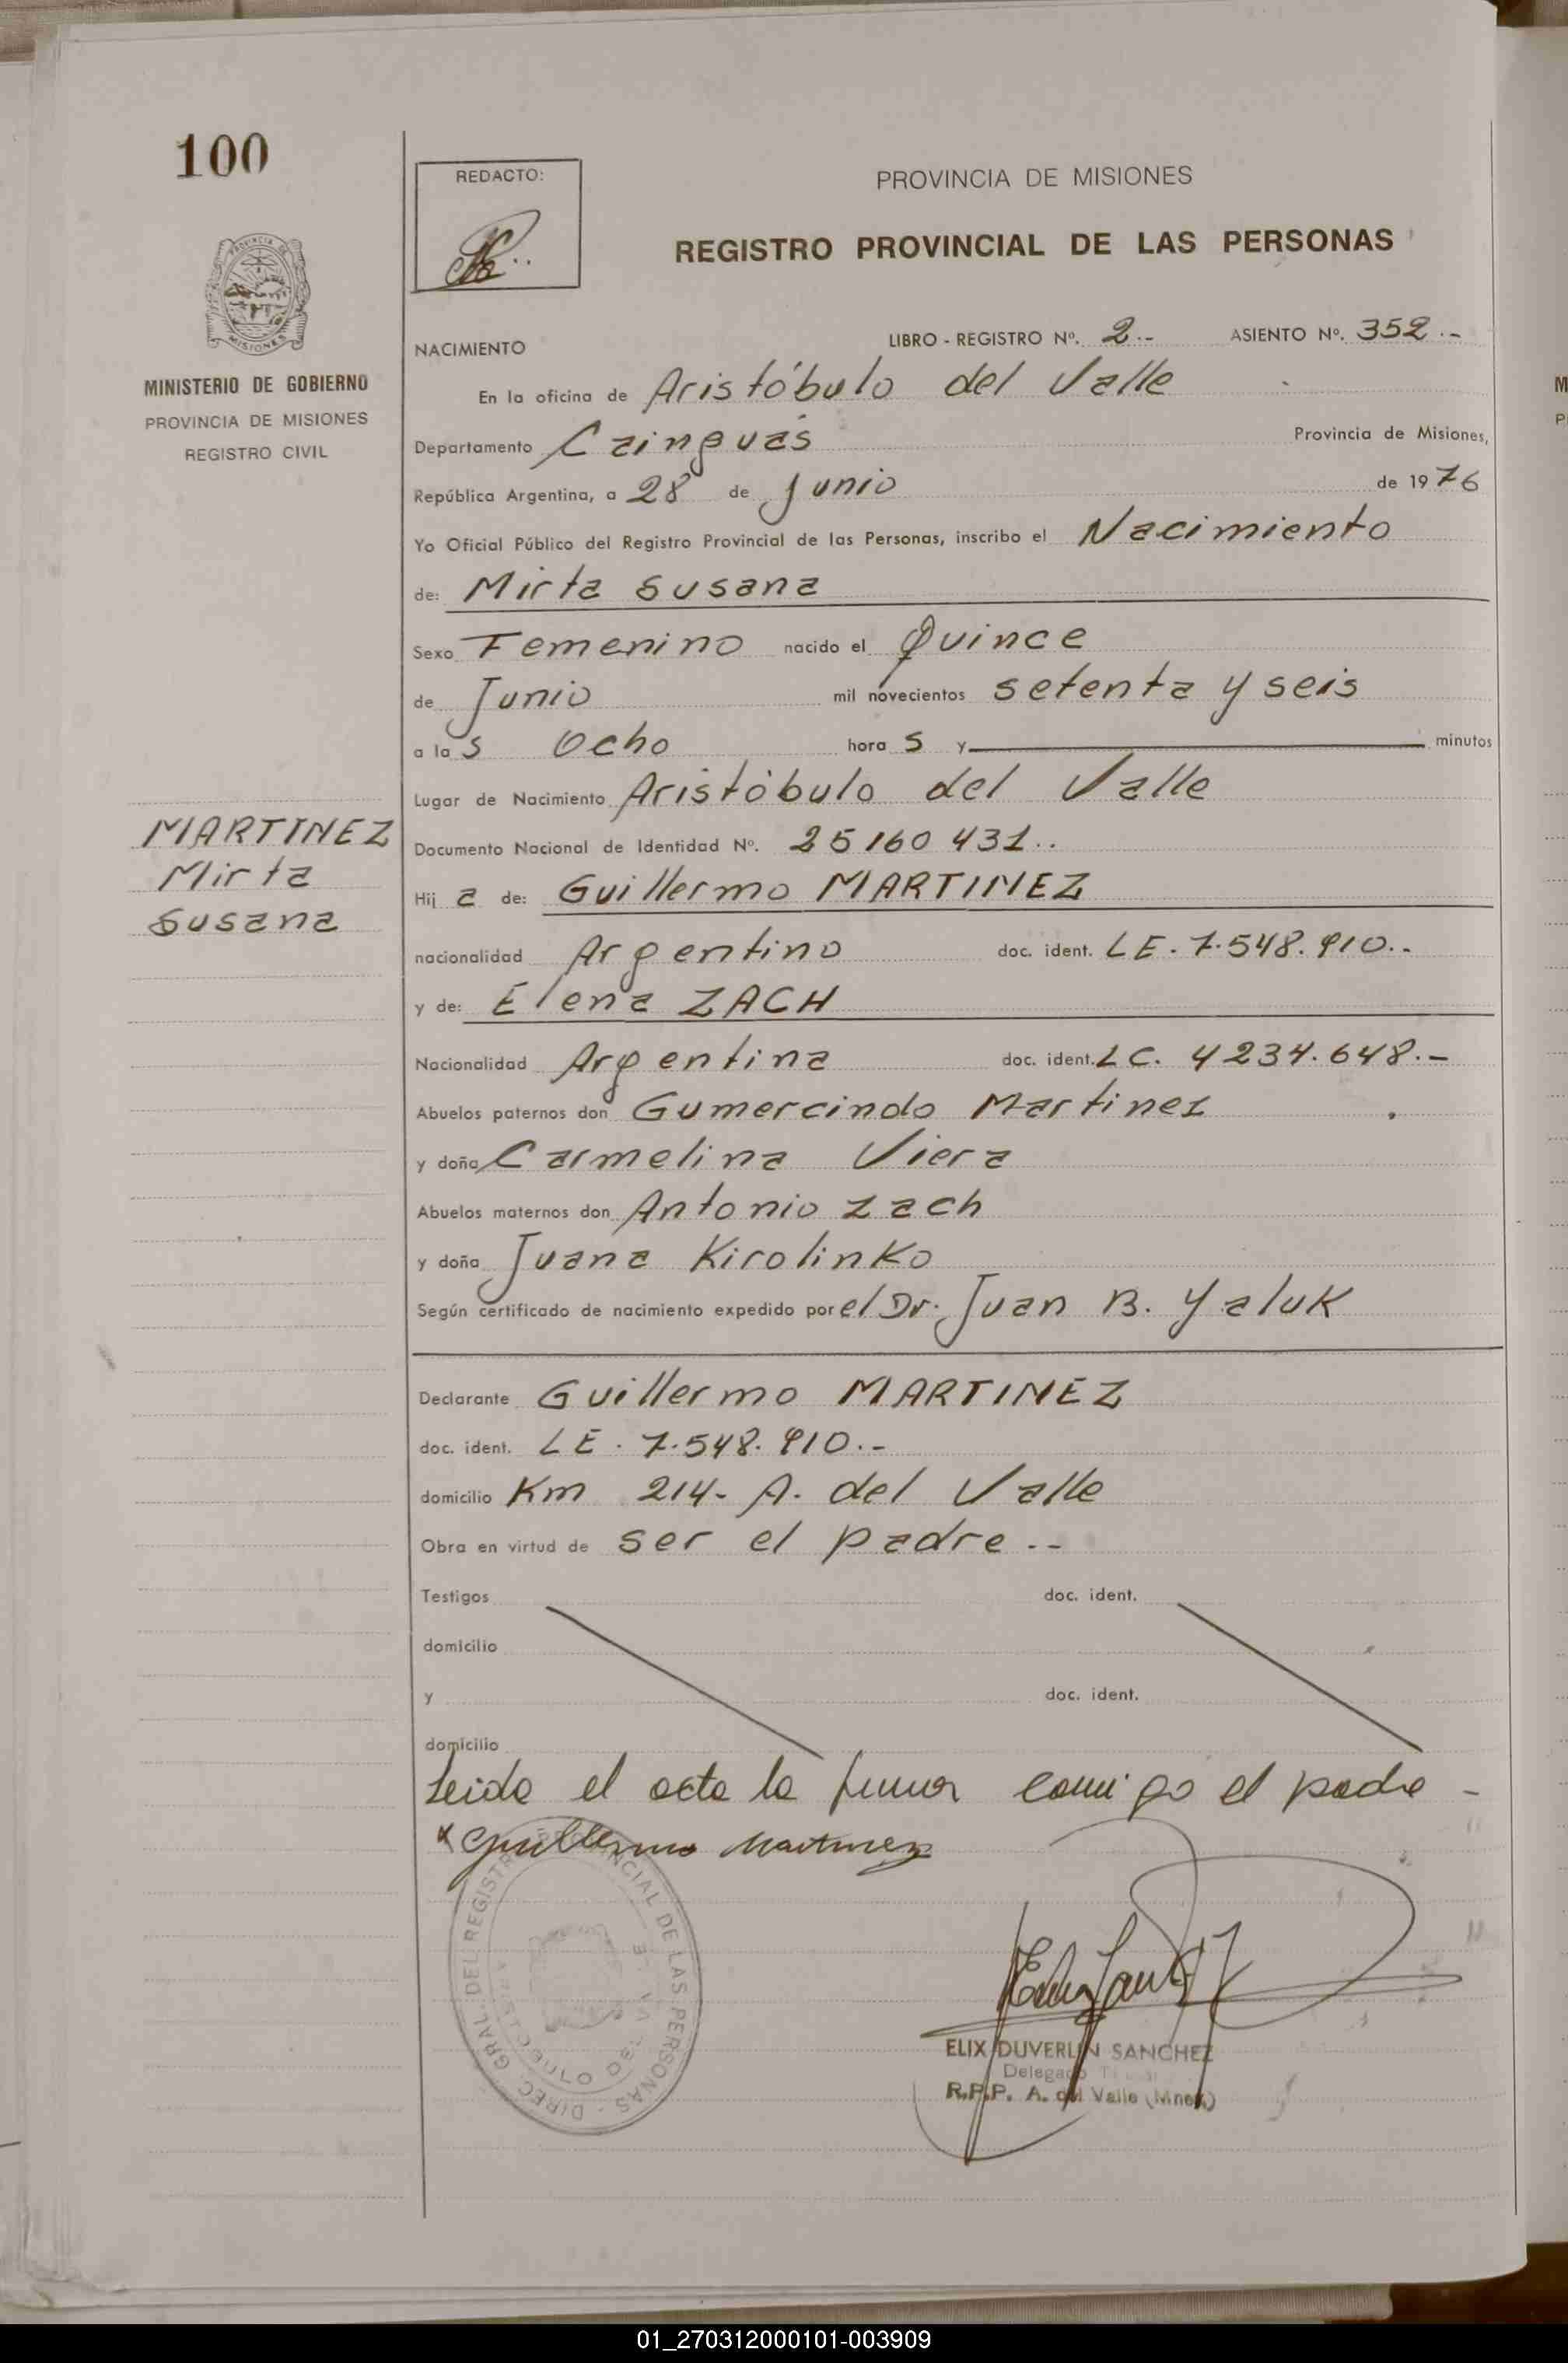 100
REDACTO:
PROVINCIA DE MISIONES
REGISTRO PROVINCIAL DE LAS PERSONAS
PROVINCIA DE
MISIONES
MINISTERIO DE GOBIERNO
PROVINCIA DE MISIONES
REGISTRO CIVIL
NACIMIENTO LIBRO - REGISTRO Nº. 2.- ASIENTO Nº. 352.-
En la oficina de Aristóbulo del Valle
Departamento Cainguás Provincia de Misiones,
República Argentina, a 28 de Junio de 1976
Yo Oficial Público del Registro Provincial de las Personas, inscribo el Nacimiento
de: Mirta Susana
Sexo Femenino nacido el Quince
de Junio mil novecientos setenta y seis
a las Ocho horas y minutos
Lugar de Nacimiento Aristóbulo del Valle
MARTINEZ
Mirta
Susana
Documento Nacional de Identidad Nº. 25160 431..
Hija de: Guillermo MARTINEZ
nacionalidad Argentino doc. ident. LE. 7.548.910.-
y de: Elena ZACH
Nacionalidad Argentina doc. ident. LC. 4234.648.-
Abuelos paternos don Gumercindo Martinez
y doña Carmelina Viera
Abuelos maternos don Antonio Zach
y doña Juana Kirolinko
Según certificado de nacimiento expedido por el Dr. Juan B. Yaluk
Declarante Guillermo MARTINEZ
doc. ident. LE. 7.548.910.-
domicilio Km 214- A. del Valle
Obra en virtud de ser el padre.--
Testigos doc. ident.
domicilio
y doc. ident.
domicilio
Leida el acta la firma conmigo el padre -
x Guillermo Martinez
DIREC. GRAL. DEL REGISTRO PROVINCIAL DE LAS PERSONAS
ARISTOBULO DEL VALLE
ELIX DUVERLIN SANCHEZ
Delegado
R.P.P. A. del Valle (Mnes.)
01_270312000101-003909